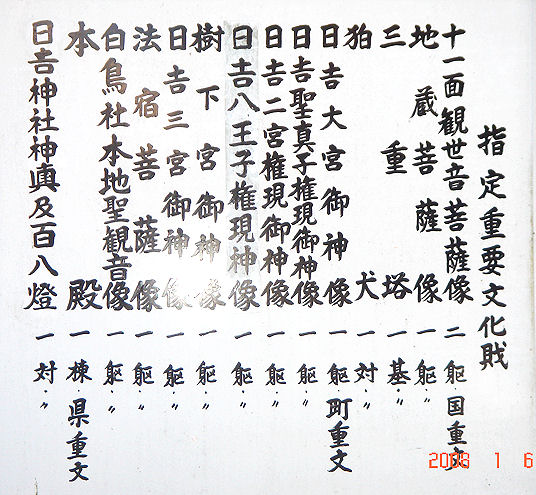 指定重要文化財
十一面観世音菩薩像 二 躯 国重文
地蔵菩薩像 一 躯 〃
三重塔 一 基 〃
狛犬 一 対 〃
日吉大宮御神像 一 躯 町重文
日吉聖真子権現御神像 一 躯 〃
日吉二宮権現御神像 一 躯 〃
日吉八王子権現神像 一 躯 〃
樹下宮御神像 一 躯 〃
日吉三宮御神像 一 躯 〃
法宿菩薩像 一 躯 〃
白鳥社本地聖観音像 一 躯 〃
本殿 一 棟 県重文
日吉神社神輿及百八燈 一 対 〃
2008 1 6